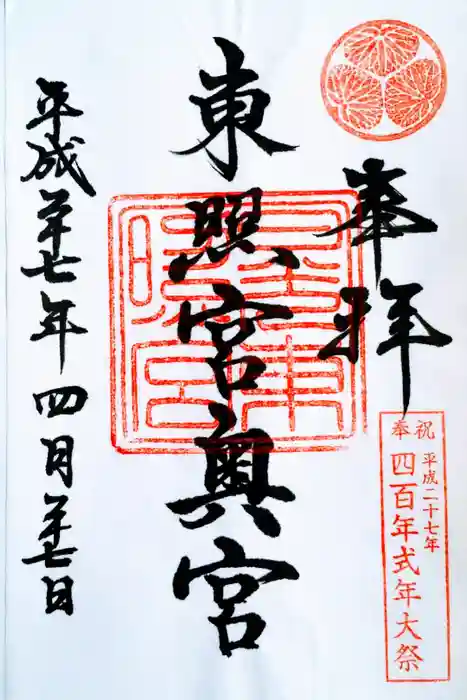 奉拝
祝奉
平成二十七年
四百年式年大祭
東照宮奥宮
平成廿七年四月廿七日